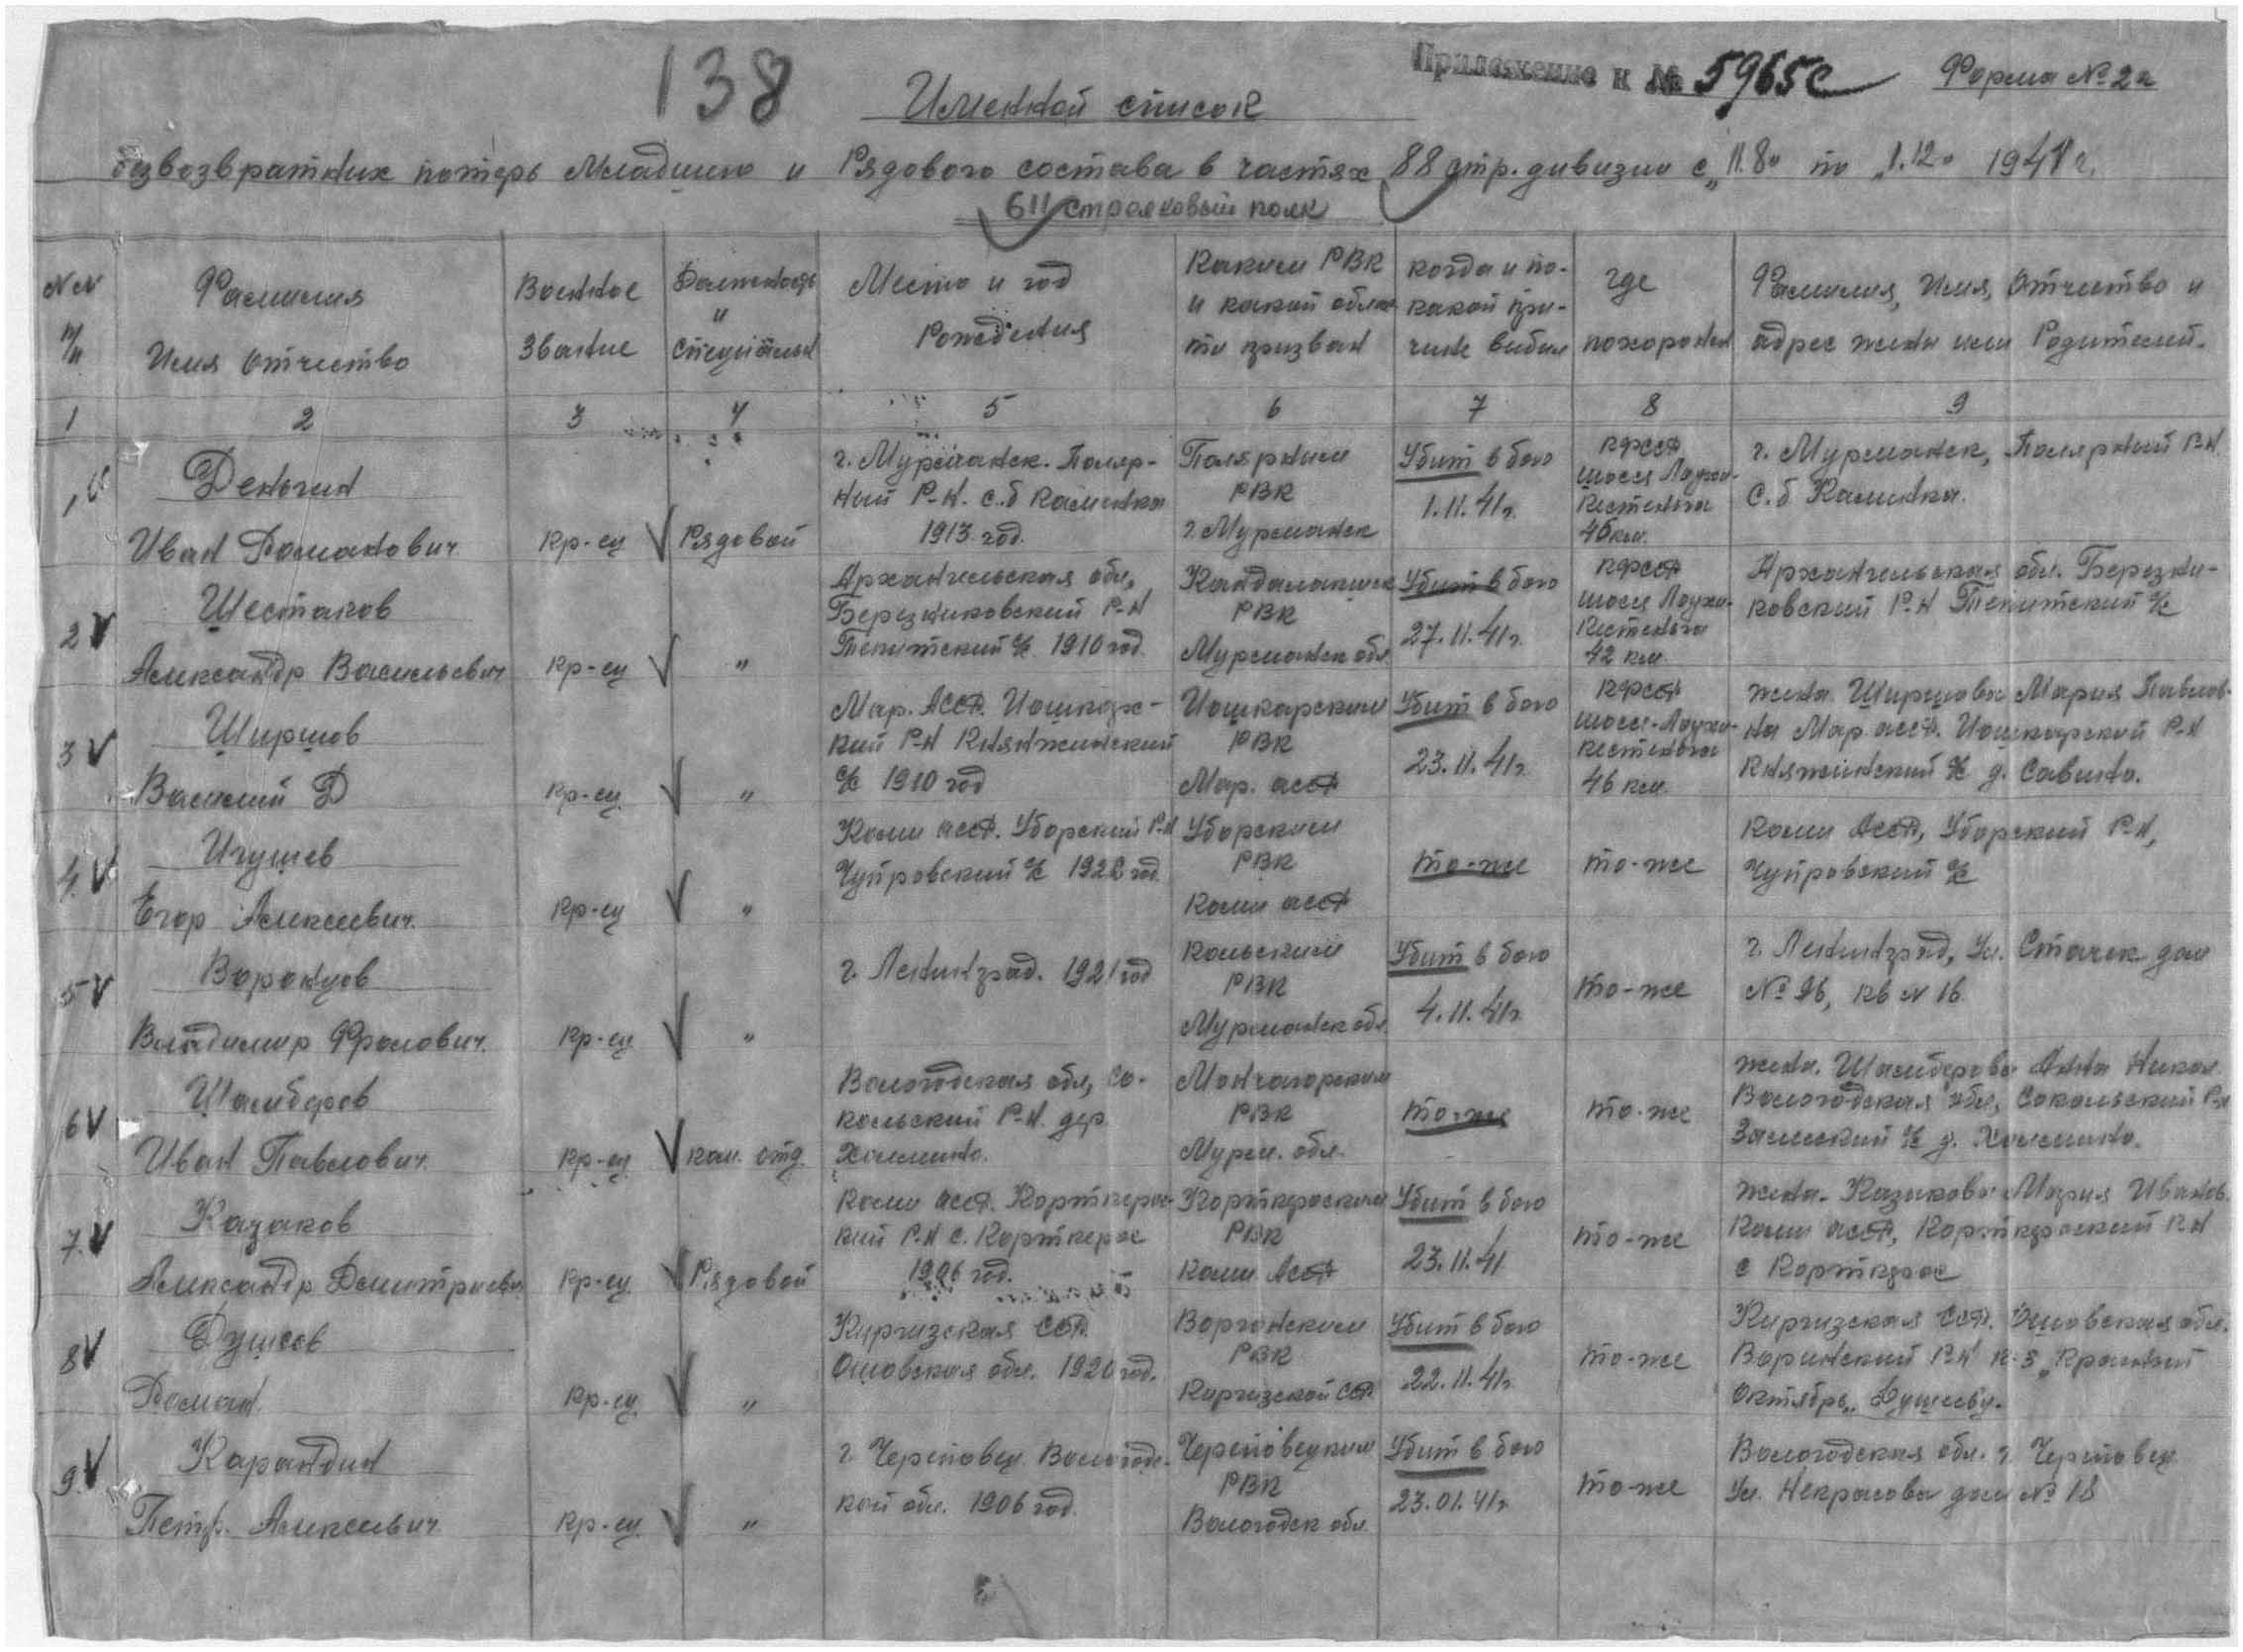 138
Приложение к № 5965с
Форма № 2а
Именной список
безвозвратних потерь Младшего и Рядового состава в частях 88 стр. дивизии с „11.8" по „1.12" 1941 г.
611 стрелковый полк
№№ п/п
Фамилия Имя Отчество
Военное Звание
Должность и специальн
Место и год Рождения
Каким РВК и какой области призван
когда и по какой причине выбыл
где похоронен
Фамилия, Имя, Отчество и адрес жены или Родителей.
1 2 3 4 5 6 7 8 9
1
Деньгин
Иван Романович
Кр-ец
Рядовой
г. Мурманск. Поляр-
ный Р-Н. с.б Калинка
1913 год.
Полярним
РВК
г. Мурманск
Убит в бою
1.11.41г.
КФССР
шоссе Лоухи-
Кестеньга
46 км.
г. Мурманск, Полярный Р-Н
С.б Калинка.
2
Шестаков
Александр Васильевич
Кр-ец
"
Архангельская обл,
Березниковский Р-Н
с/с 1910 год.
Кандалакшск
РВК
Мурманск обл.
Убит в бою
27.11.41г.
КФССР
шоссе Лоухи-
Кестеньга
42 км.
Архангельская обл. Березни-
ковский Р-Н с/с
3
Ширшов
Василий Д
Кр-ец
"
Мар. АССР. Йошкарс-
кий Р-Н Княжинский
с/с 1910 год
Йошкарским
РВК
Мар. АССР
Убит в бою
23.11.41г.
КФССР
шоссе-Лоухи-
Кестеньга
46 км.
жена Ширшова Мария Павлов-
на Мар АССР. Йошкарский Р-Н
Княжинский с/с д. Савино.
4.
Игушев
Егор Алексеевич.
Кр-ец
"
Коми АССР. Уборский Р-Н
Чупровский с/с год.
Уборским
РВК
Коми АССР
то-же
то-же
Коми АССР, Уборский Р-Н,
Чупровский с/с
5
Воронцов
Владимир Фролович.
Кр-ец
"
г. Ленинград. 1921 год
Кольским
РВК
Мурманск обл.
Убит в бою
4.11.41г.
то-же
г. Ленинград, Ул. Стачек дом
№ 96, кв № 16
6
Шамберов
Иван Павлович
Кр-ец
ком. отд.
Вологодская обл, Со-
кольский Р-Н. дер.
Хомлино.
Мончагорским
РВК
Мурм. обл.
то-же
то-же
жена. Шамберова Анна Никол.
Вологодская обл, Сокольский Р-Н
с/с д. Хомлино.
7.
Казаков
Александр Дмитриевич
Кр-ец
Рядовой
Коми АССР. Корткерос-
кий Р-Н с. Корткерос
1906 год.
Корткероским
РВК
Коми АССР
Убит в бою
23.11.41
то-же
жена. Казакова Мария Иванов.
Коми АССР, Корткероский Р-Н
с Корткерос
8
Душеев
Роман.
Кр-ец
"
Киргизская ССР.
Ошовская обл. 1920 год.
РВК
Киргизской ССР
Убит в бою
22.11.41г.
то-же
Киргизская ССР. Ошовская обл.
Р-Н к-з „Красный
Октябрь„ Душееву.
9.
Карандин
Петр. Алексеевич
Кр-ец
"
г. Череповец Вологодс-
кой обл. 1906 год.
Череповецким
РВК
Вологодск обл.
Убит в бою
23.01.41г.
то-же
Вологодская обл. г. Череповец
Ул. Некрасова дом № 18